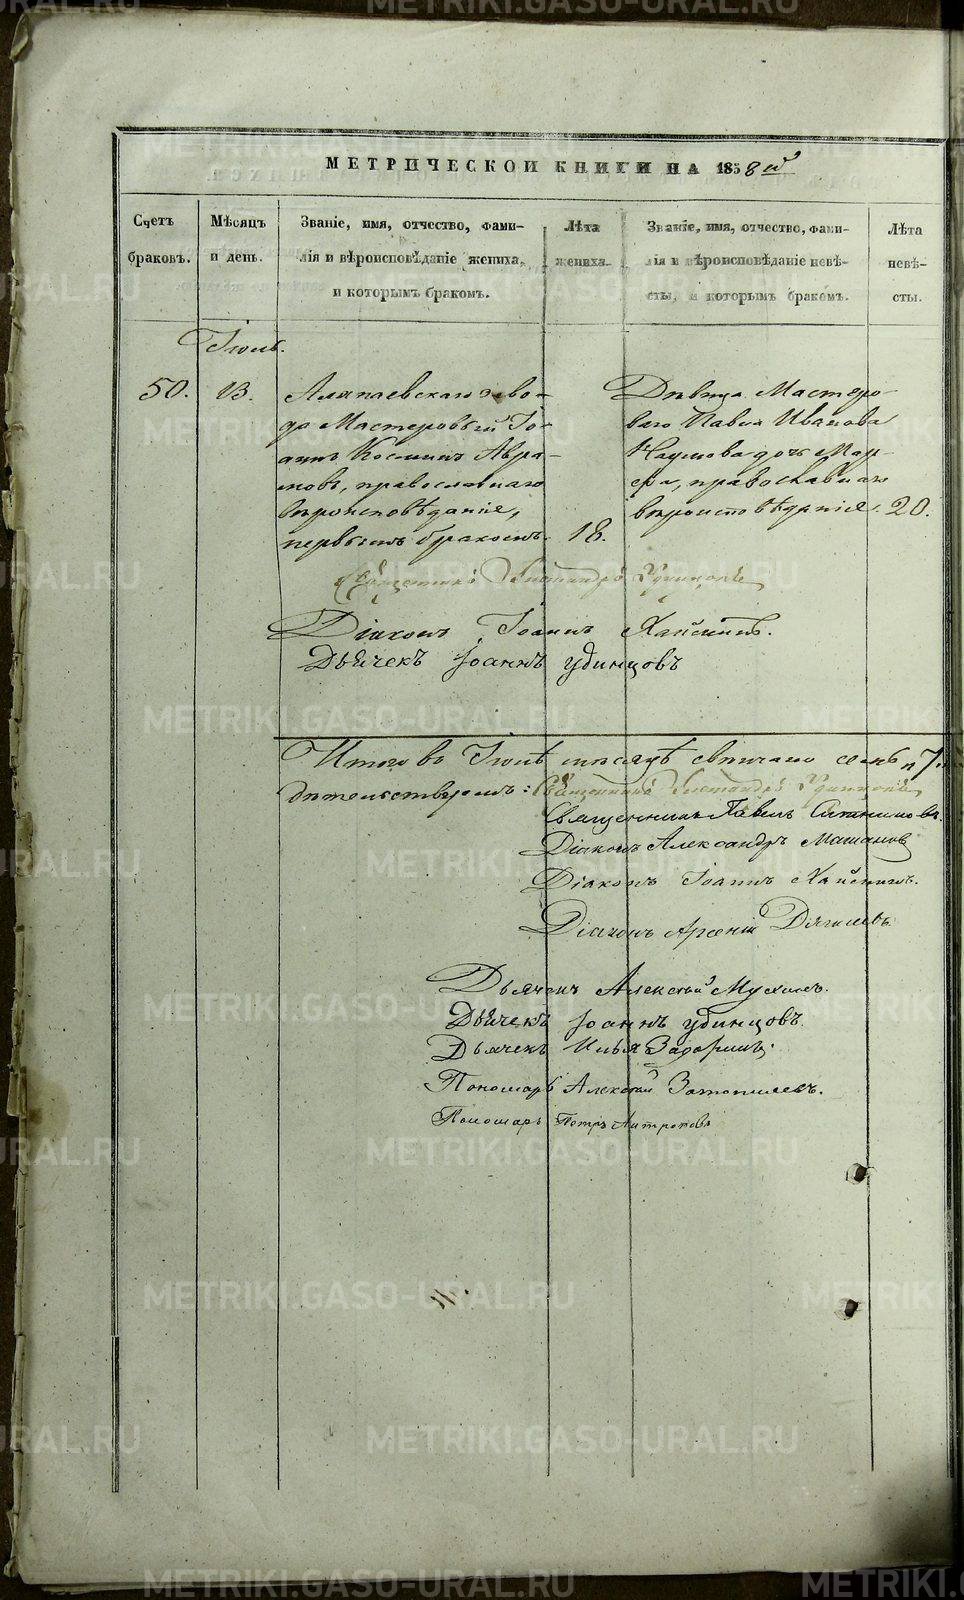 МЕТРИЧЕСКОЙ КНИГИ НА 1858й
Счетъ браковъ.
Мѣсяцъ и день.
Званіе, имя, отчество, фами-
лія и вѣроисповѣданіе жениха,
и которымъ бракомъ.
Лѣта
жениха.
Званіе, имя, отчество, фами-
лія и вѣроисповѣданіе невѣ-
сты, и которымъ бракомъ.
Лѣта
невѣ-
сты.
50.
13.
Алапаевскаго заво-
да Мастеровый Іо-
аннъ Косминъ Авра-
мовъ, православнаго
вѣроисповѣданія,
первымъ бракомъ.
18.
Дѣвица Мастеро-
ваго Павла Иванова
Наумова дочь Мар-
ѳа, православнаго
вѣроисповѣданія.
20.
Священникъ Удинцовъ
Діаконъ Іоаннъ
Дьячекъ Іоаннъ Удинцовъ
Итого въ мѣсяцѣ свѣнчано семь 7.
Священникъ Удинцовъ
Священникъ Павелъ
Діаконъ Александръ
Діаконъ Іоаннъ
Діаконъ Арсеній Дягилевъ
Дьячекъ Алексѣй
Дьячекъ Іоаннъ Удинцовъ.
Дьячекъ Илья
Пономарь Алексѣй Затопляевъ.
Пономарь Петръ
METRIKI.GASO-URAL.RU